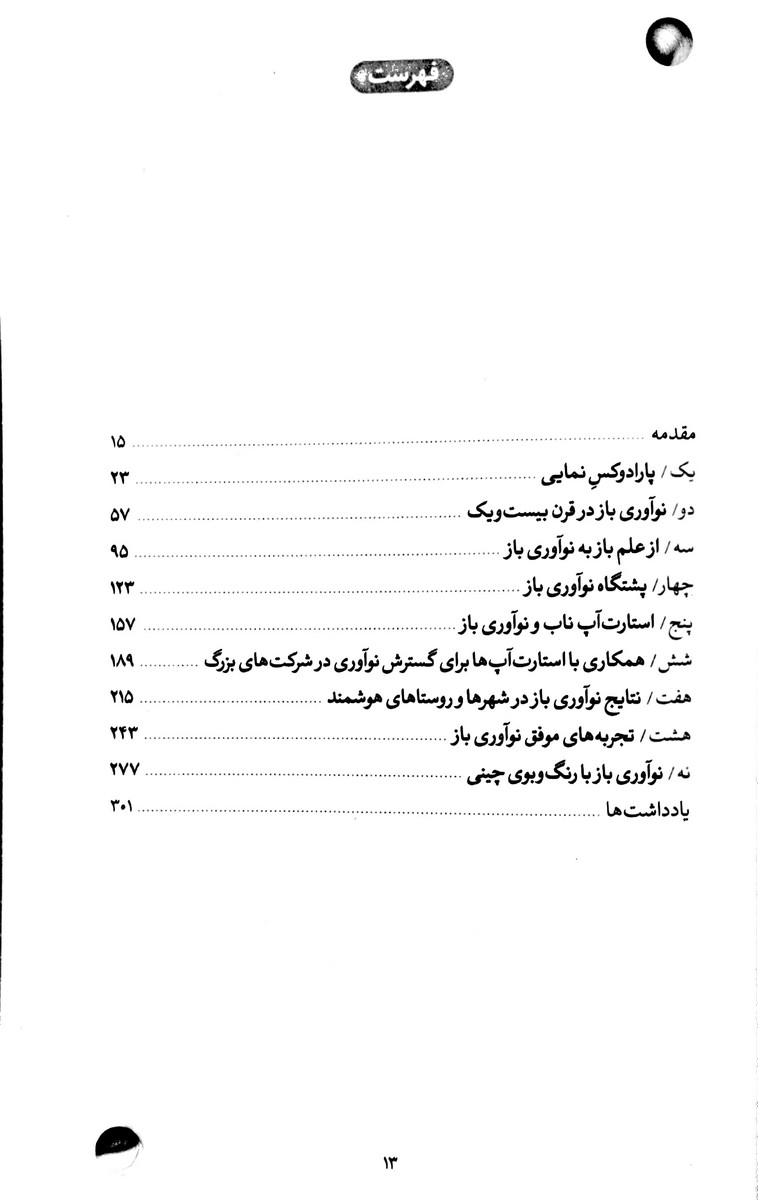 فهرست
مقدمه ........ ۱۵
یک/ پارادوکسِ نمایی ........ ۲۳
دو/ نوآوری باز در قرن بیست‌ویک ........ ۵۷
سه/ از علم باز به نوآوری باز ........ ۹۵
چهار/ پشتگاه نوآوری باز ........ ۱۲۳
پنج/ استارت‌آپ ناب و نوآوری باز ........ ۱۵۷
شش/ همکاری با استارت‌آپ‌ها برای گسترش نوآوری در شرکت‌های بزرگ ........ ۱۸۹
هفت/ نتایج نوآوری باز در شهرها و روستاهای هوشمند ........ ۲۱۵
هشت/ تجربه‌های موفق نوآوری باز ........ ۲۴۳
نه/ نوآوری باز با رنگ‌وبوی چینی ........ ۲۷۷
یادداشت‌ها ........ ۳۰۱
۱۳